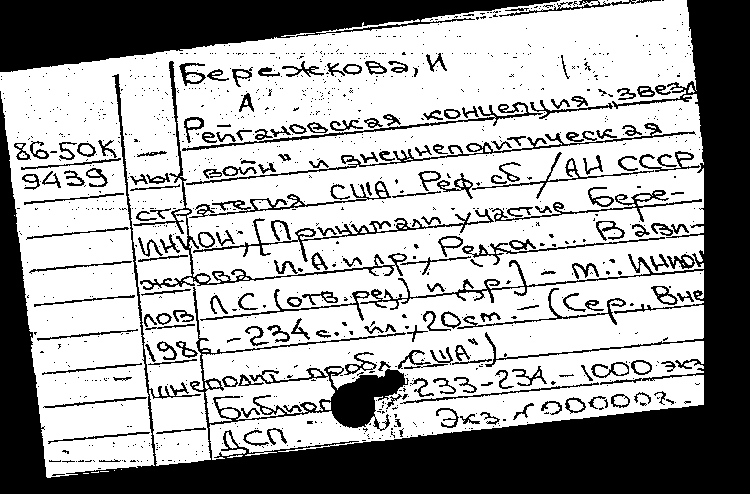 Бережкова, И
А
Рейгановская концепция „звезд
86-50К
9439
ных войн" и внешнеполитическая
стратегия США: Реф. сб. / АН СССР,
ИНИОН; [Принимали участие Бере-
жкова И.А. и др.; Редкол.: ... Вави-
лов Л.С. (отв. ред.) и др.] - М.: ИНИОН
1986. - 234 с.: ил.; 20 см. - (Сер. „Вне
шнеполит. пробл. США").
Библиог 233-234. - 1000 экз
ДСП. Экз. № 000002.